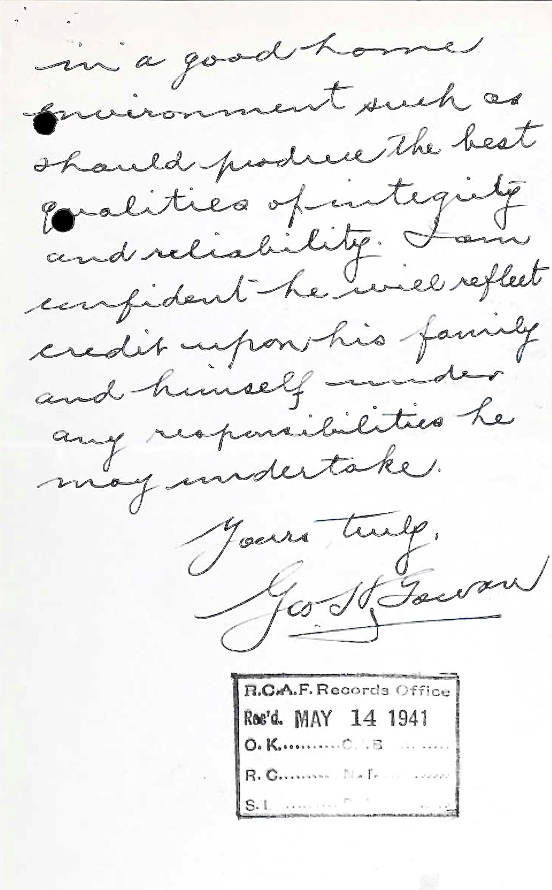 in a good home
environment such as
should produce the best
qualities of integrity
and reliability. I am
confident he will reflect
credit upon his family
and himself under
any responsibilities he
may undertake.
Yours truly,
Geo. H. Gowan
R.C.A.F. Records Office
Rec'd. MAY 14 1941
O.K.
R.C.
S.I.